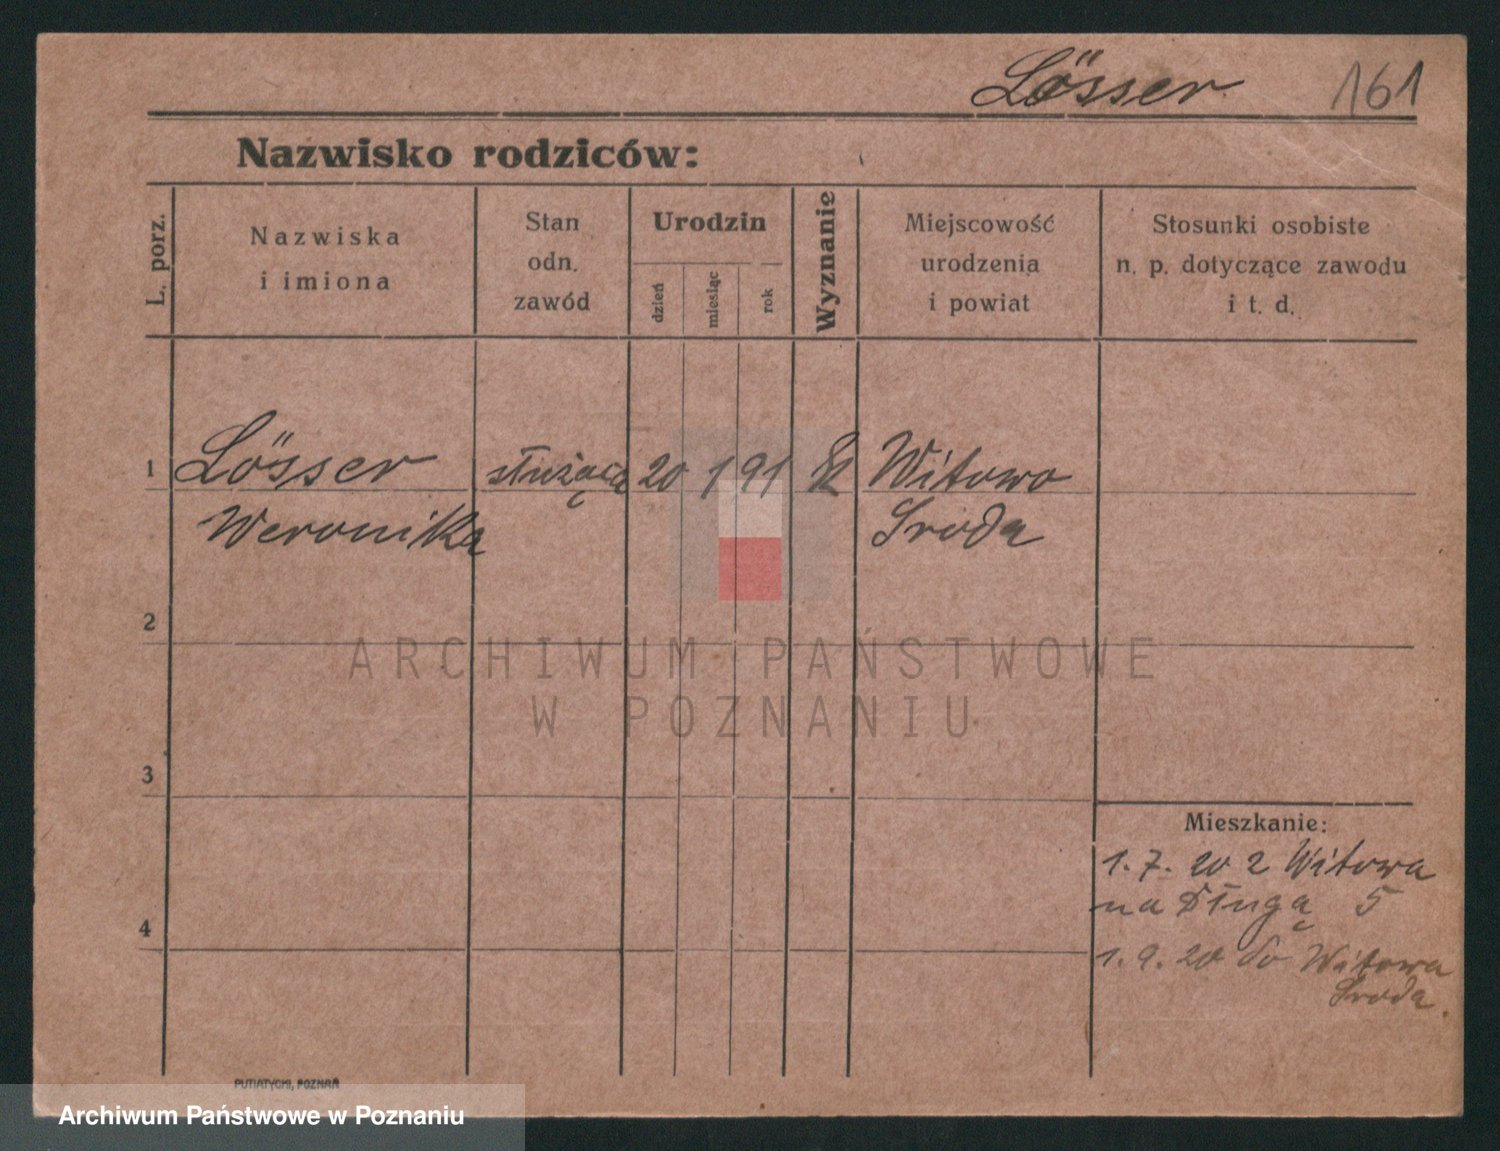 Lösser 161
Nazwisko rodziców:
L. porz.
Nazwiska
i imiona
Stan
odn.
zawód
Urodzin
dzień
miesiąc
rok
Wyznanie
Miejscowość
urodzenia
i powiat
Stosunki osobiste
n. p. dotyczące zawodu
i t. d.
1 Lösser służąca 20 1 91 Witowo
Weronika Sroda
2
ARCHIWUM PAŃSTWOWE
W POZNANIU
3
Mieszkanie:
1. 7. 20 z Witowa
na Długą 5
4
1. 9. 20 do Witowa
Sroda.
PUTIATYCKI, POZNAŃ
Archiwum Państwowe w Poznaniu